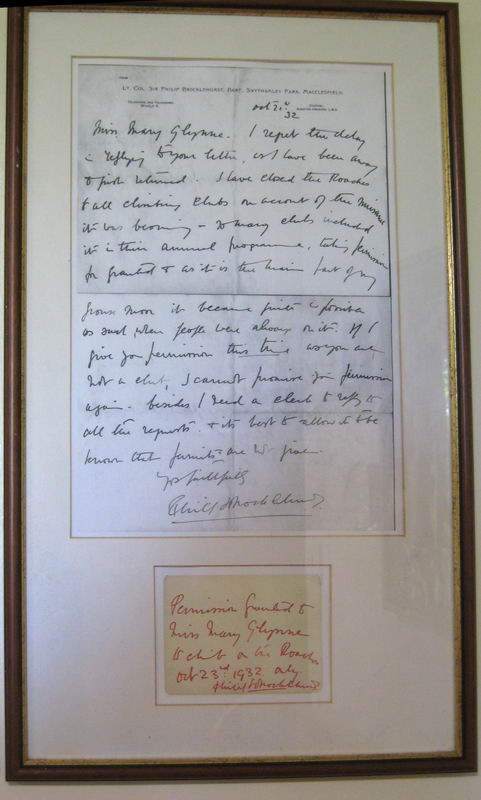 LT. COL. SIR PHILIP BROCKLEHURST, BART, SWYTHAMLEY PARK, MACCLESFIELD.
TELEPHONE AND TELEGRAMS
STATION:
Oct 21st
32
Miss Mary Glynne. I regret the delay
in replying to your letter, as I have been away
& just returned. I have closed the Roaches
to all climbing clubs on account of the nuisance
it was becoming – so many clubs included
it in their annual programme, taking permission
for granted & as it is the main part of my
grouse moor it became quite impossible
as such, when people were always on it. If I
give you permission this time as you are
not a club, I cannot promise you permission
again. besides I need a clerk to reply to
all the requests & its best to allow it to be
known that permits are not given.
Yrs faithfully
Philip Brocklehurst.
Permission granted to
Miss Mary Glynne
to climb on the Roaches
Oct 23rd 1932 only.
Philip Brocklehurst